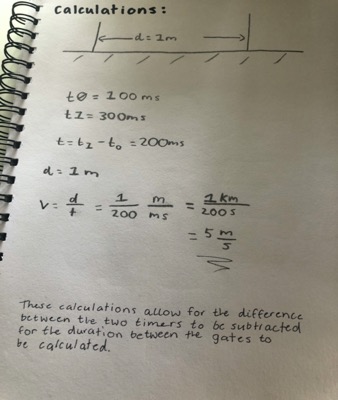 Calculations:
d = 1m
t0 = 100ms
t1 = 300ms
t = t1 - t0 = 200ms
d = 1 m
V = d/t = 1/200 m/ms = 1km/200s
= 5 m/s
These calculations allow for the difference
between the two timers to be subtracted
for the duration between the gates to
be calculated.